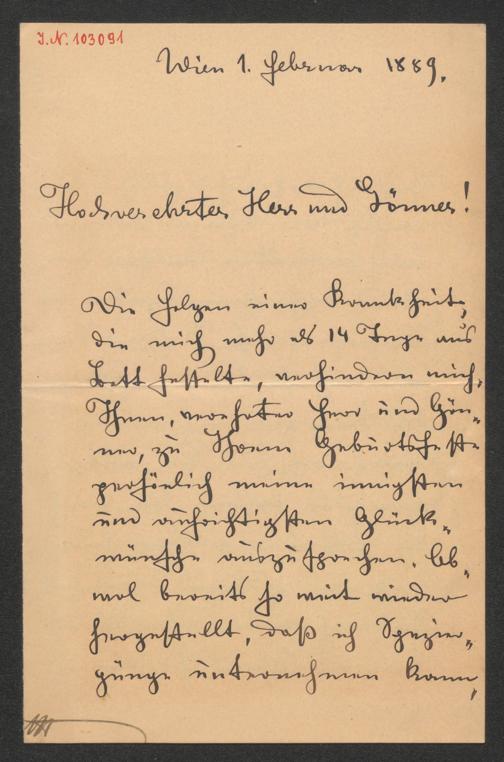 I. N. 103091
Wien 1. Februar 1889.
Hochverehrter Herr und Gönner!
Die Folgen einer Krankheit,
die mich mehr als 14 Tage ans
Bett fesselte, verhindern mich,
Ihnen, verehrter Herr und Gön-
ner, zu Ihrem Geburtsfeste
persönlich meine innigsten
und aufrichtigsten Glück-
wünsche auszusprechen. Ob-
wol bereits so weit wieder
hergestellt, daß ich Spazier-
gänge unternehmen kann,